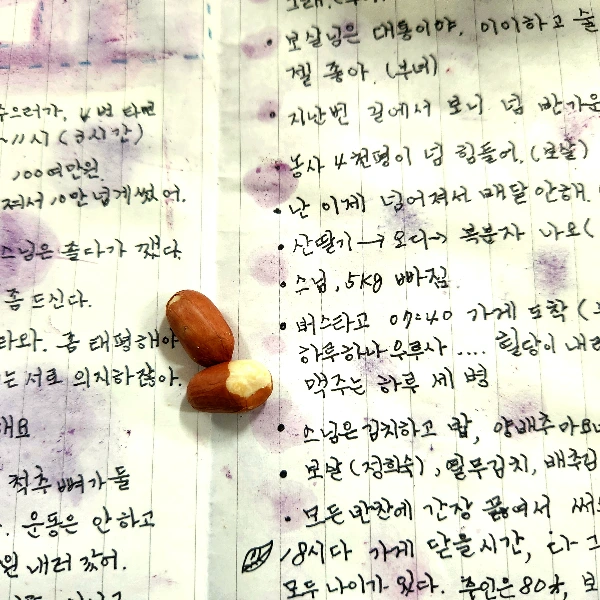 4번 타면
~11시 (3시간)
100여만원
져서 10만넘게썼어.
스님은 졸다가 깼다.
좀 드신다.
타와. 좀 태평해야
는 서로 의지하잖아.
해요
척추뼈가 둘
운동은 안하고
원 내러 갔어.
그래.
• 보살님은 대통이야. 이이하고 술
젤 좋아. (부녀)
• 지난번 길에서 보니 넘 반가운
• 농사 4천평이 넘 힘들어. (보살)
• 난 이제 넘어져서 배달 안해.
• 산딸기 → 오디 → 복분자 나오(
• 스님, 5kg 빠짐.
• 버스타고 07:40 가게 도착 (
하루하나 우루사 .... 혈당이 내려
맥주는 하루 세 병
• 스님은김치하고 밥, 양배추
• 보살 (정희숙), 열무김치, 배추김
• 모든반찬에 간장 끓여서
18시다 가게 닫을시간, 다 그
모두 나이가 있다. 주인은 80세, 보